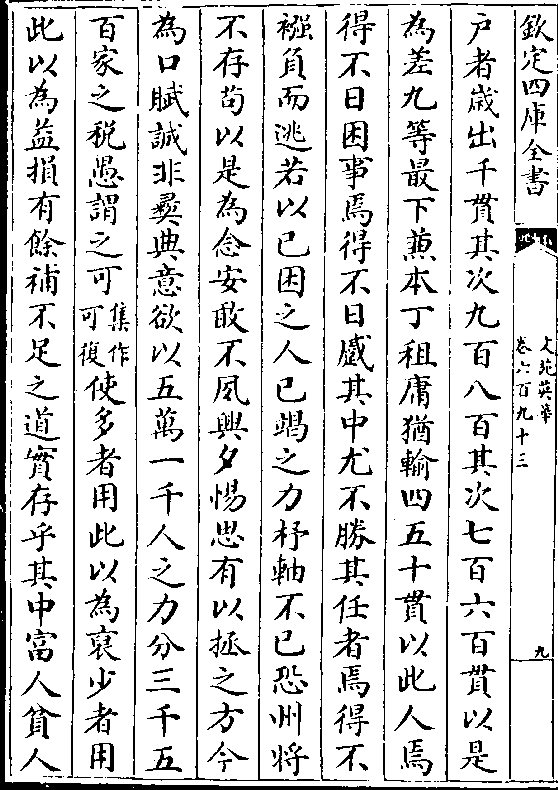 欽定四庫全書
文苑英華
卷六百九十三
九
户者歳出千貫其次九百八百其次七百六百貫以是
為差九等最下兼本丁租庸猶輸四五十貫以此人焉
得不日困事焉得不日蹙其中尤不勝其任者焉得不
襁負而逃若以已困之人已竭之力杼軸不已恐州將
不存苟以是為念安敢不夙興夕惕思有以拯之方今
為口賦誠非彞典意欲以五萬一千人之力分三千五
百家之税愚謂之可集作可復使多者用此以為裒少者用
此以為益損有餘補不足之道實存乎其中富人貧人